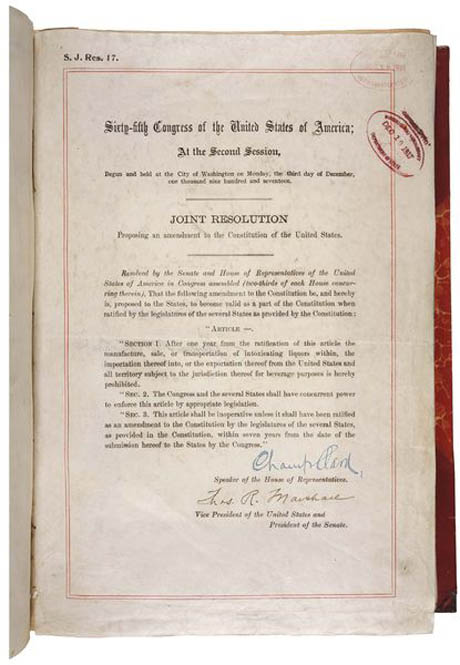 S. J. Res. 17.
DEC 19 1917
Sixty-fifth Congress of the United States of America;
At the Second Session,
Begun and held at the City of Washington on Monday, the third day of December,
one thousand nine hundred and seventeen.
JOINT RESOLUTION
Proposing an amendment to the Constitution of the United States.
Resolved by the Senate and House of Representatives of the United
States of America in Congress assembled (two-thirds of each House concur-
ring therein), That the following amendment to the Constitution be, and hereby
is, proposed to the States, to become valid as a part of the Constitution when
ratified by the legislatures of the several States as provided by the Constitution:
"ARTICLE —.
"SECTION 1. After one year from the ratification of this article the
manufacture, sale, or transportation of intoxicating liquors within, the
importation thereof into, or the exportation thereof from the United States and
all territory subject to the jurisdiction thereof for beverage purposes is hereby
prohibited.
"SEC. 2. The Congress and the several States shall have concurrent power
to enforce this article by appropriate legislation.
"SEC. 3. This article shall be inoperative unless it shall have been ratified
as an amendment to the Constitution by the legislatures of the several States,
as provided in the Constitution, within seven years from the date of the
submission hereof to the States by the Congress."
Champ Clark,
Speaker of the House of Representatives.
Thos. R. Marshall
Vice President of the United States and
President of the Senate.